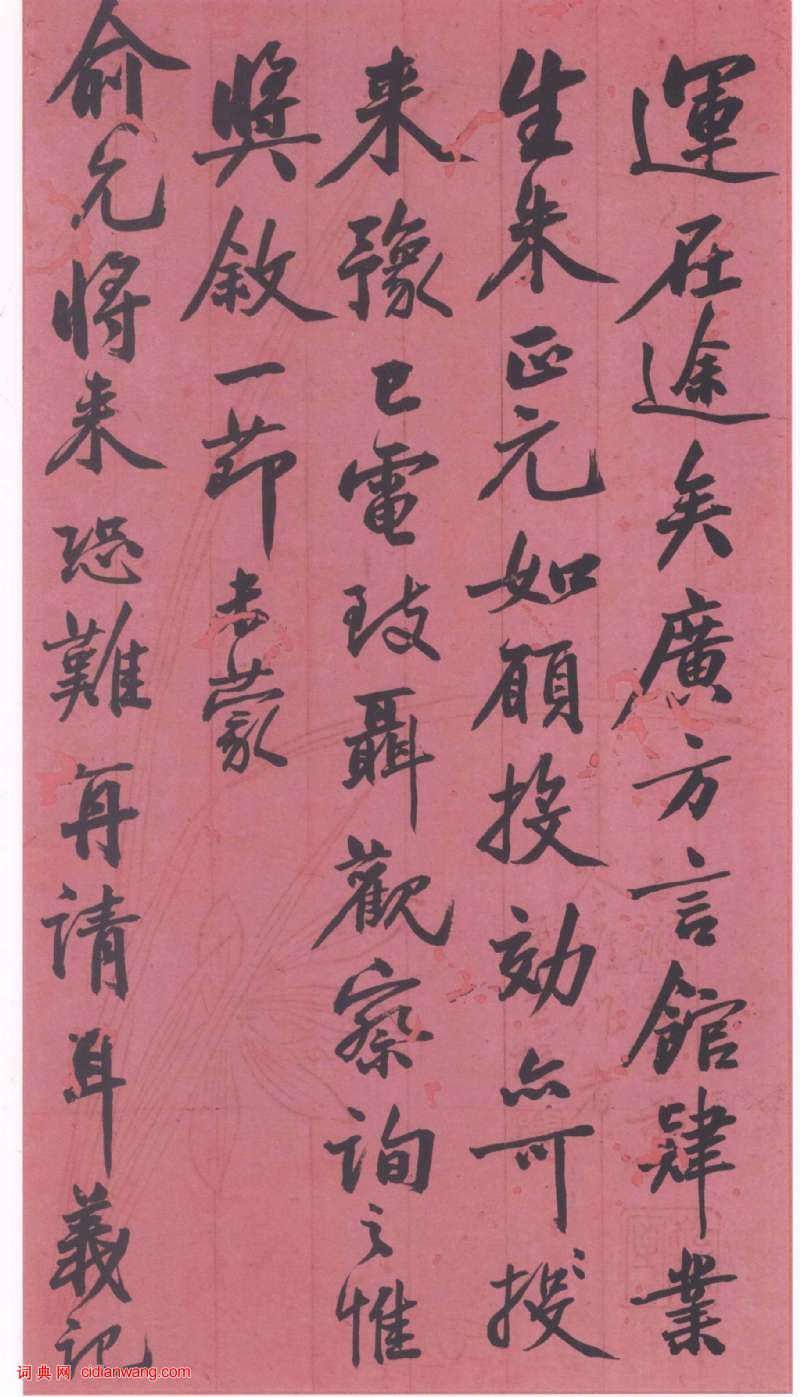 運在途矣廣方言館肄業
生朱正元如願投効亦可援
来豫已電致聶觀察詢之惟
奬敘一節未蒙
俞允將来恐難再請耳義記
词典网 cidianwang.com